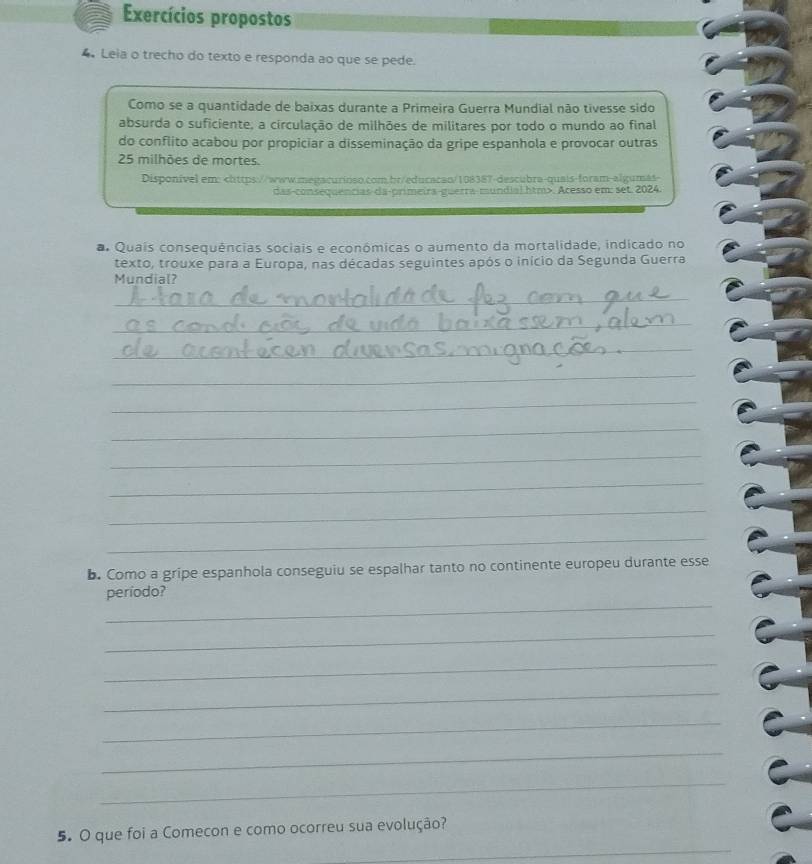 Exercícios propostos
4. Leia o trecho do texto e responda ao que se pede.
Como se a quantidade de baixas durante a Primeira Guerra Mundial não tivesse sido
absurda o suficiente, a circulação de milhões de militares por todo o mundo ao final
do conflito acabou por propiciar a disseminação da gripe espanhola e provocar outras
25 milhões de mortes.
Disponível em: <https://www.megacurioso.com.br/educacao/108387-descubra-quais-foram-algumas-
das-consequencias-da-primeira-guerra-mundial.htm>. Acesso em: set. 2024.
a. Quais consequências sociais e econômicas o aumento da mortalidade, indicado no
texto, trouxe para a Europa, nas décadas seguintes após o início da Segunda Guerra
Mundial?
A taxa de mortalidade fez com que
as condições de vida baixassem, alem
de acontecer diversas migrações.
b. Como a gripe espanhola conseguiu se espalhar tanto no continente europeu durante esse
período?
5. O que foi a Comecon e como ocorreu sua evolução?